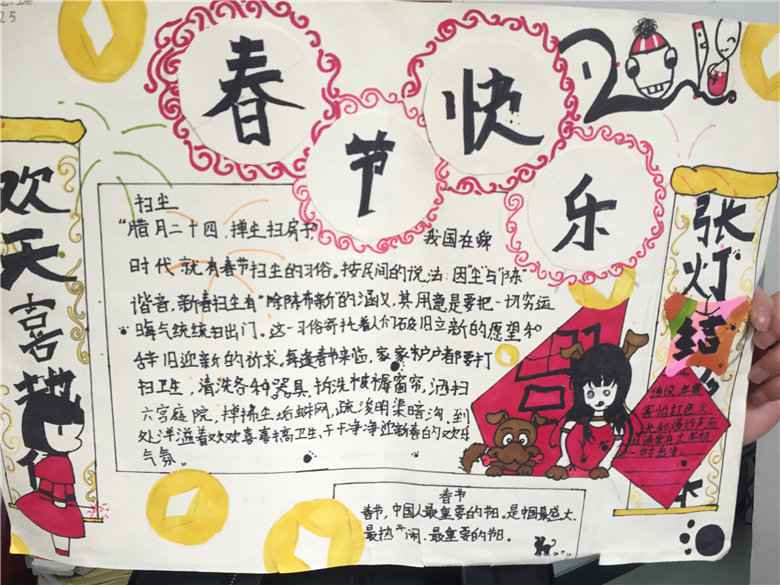 春节快乐
2018
欢天喜地
张灯结
扫尘
“腊月二十四，掸尘扫房子”
我国在舜
时代就有春节扫尘的习俗。按民间的说法：因“尘”与“陈”
谐音，新春扫尘有“除陈布新”的涵义，其用意是要把一切穷运
晦气统统扫出门。这一习俗寄托着人们破旧立新的愿望和
辞旧迎新的祈求。每逢春节来临，家家户户都要打
扫卫生，清洗各种器具，拆洗被褥窗帘，洒扫
六宫庭院，掸拂尘垢蛛网，疏浚明渠暗沟，到
处洋溢着欢欢喜喜搞卫生、干干净净迎新春的欢乐
气氛。
春节
春节，中国人最重要的节日。是中国最盛大、
最热闹、最重要的节日。